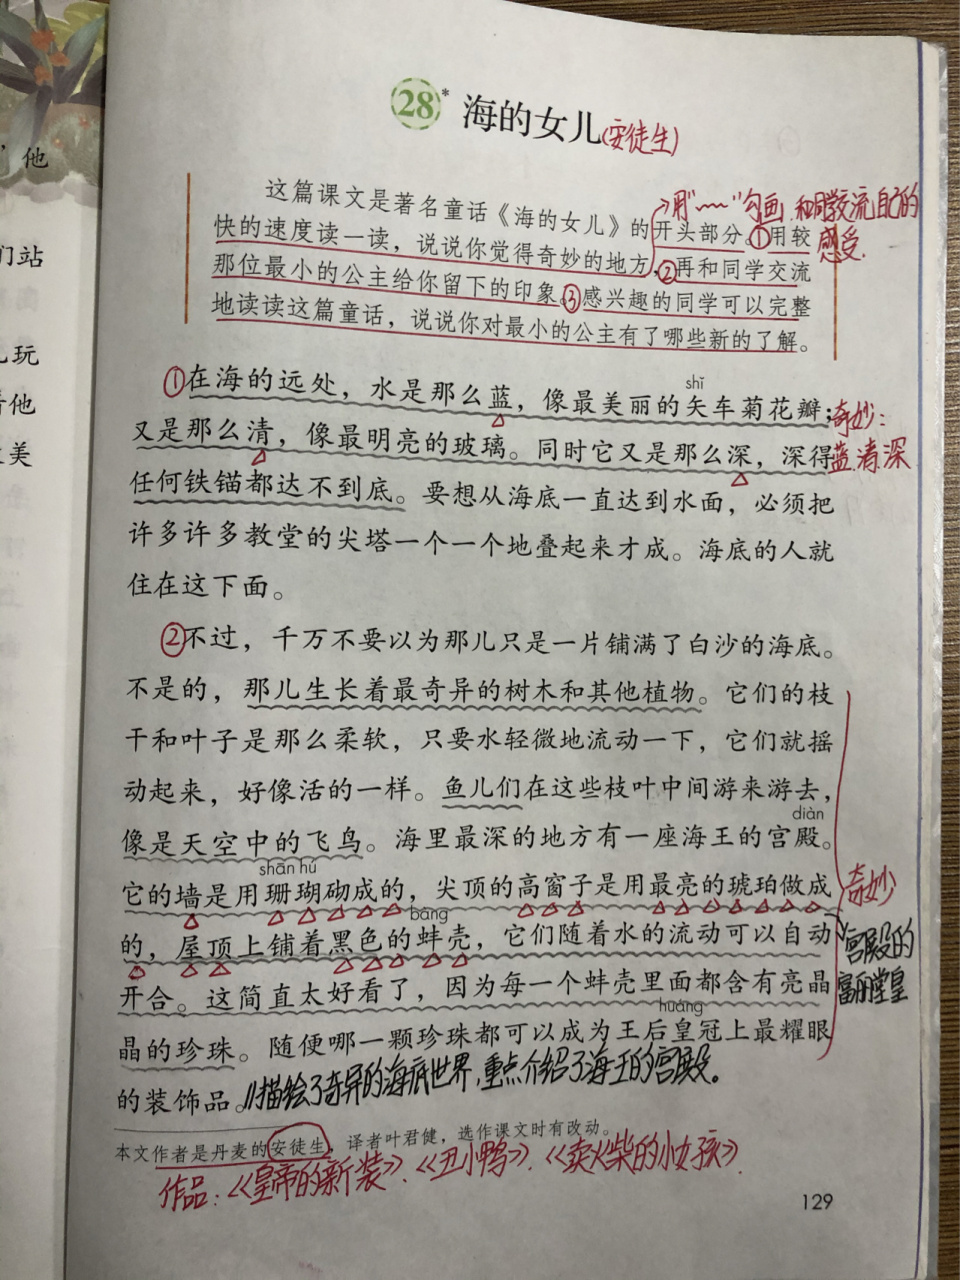 他
们站
玩
着他
美
28* 海的女儿(安徒生)
这篇课文是著名童话《海的女儿》的开头部分。①用较
快的速度读一读，说说你觉得奇妙的地方，②再和同学交流
那位最小的公主给你留下的印象。③感兴趣的同学可以完整
地读读这篇童话，说说你对最小的公主有了哪些新的了解。
→用"﹏﹏"勾画，和同学交流自己的
感受.
shǐ
①在海的远处，水是那么蓝，像最美丽的矢车菊花瓣；
又是那么清，像最明亮的玻璃。同时它又是那么深，深得
任何铁锚都达不到底。要想从海底一直达到水面，必须把
许多许多教堂的尖塔一个一个地叠起来才成。海底的人就
住在这下面。
奇妙：
蓝.清.深
②不过，千万不要以为那儿只是一片铺满了白沙的海底。
不是的，那儿生长着最奇异的树木和其他植物。它们的枝
干和叶子是那么柔软，只要水轻微地流动一下，它们就摇
动起来，好像活的一样。鱼儿们在这些枝叶中间游来游去，
diàn
像是天空中的飞鸟。海里最深的地方有一座海王的宫殿。
shān hú
它的墙是用珊瑚砌成的，尖顶的高窗子是用最亮的琥珀做成
bàng
的，屋顶上铺着黑色的蚌壳，它们随着水的流动可以自动
开合。这简直太好看了，因为每一个蚌壳里面都含有亮晶
huáng
晶的珍珠。随便哪一颗珍珠都可以成为王后皇冠上最耀眼
的装饰品。//描绘了奇异的海底世界,重点介绍了海王的宫殿。
奇妙
宫殿的
富丽堂皇
本文作者是丹麦的安徒生，译者叶君健，选作课文时有改动。
作品：《皇帝的新装》.《丑小鸭》.《卖火柴的小女孩》.
129